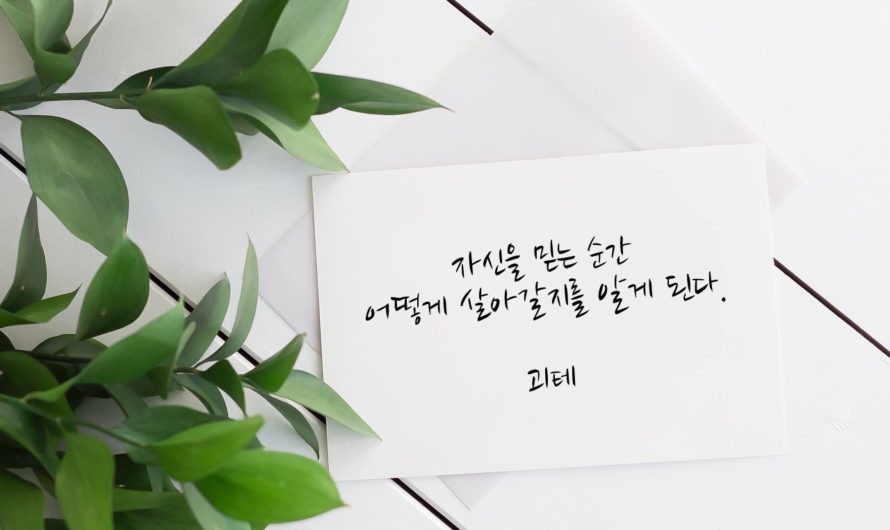 자신을 믿는 순간
어떻게 살아갈지를 알게 된다.
괴테